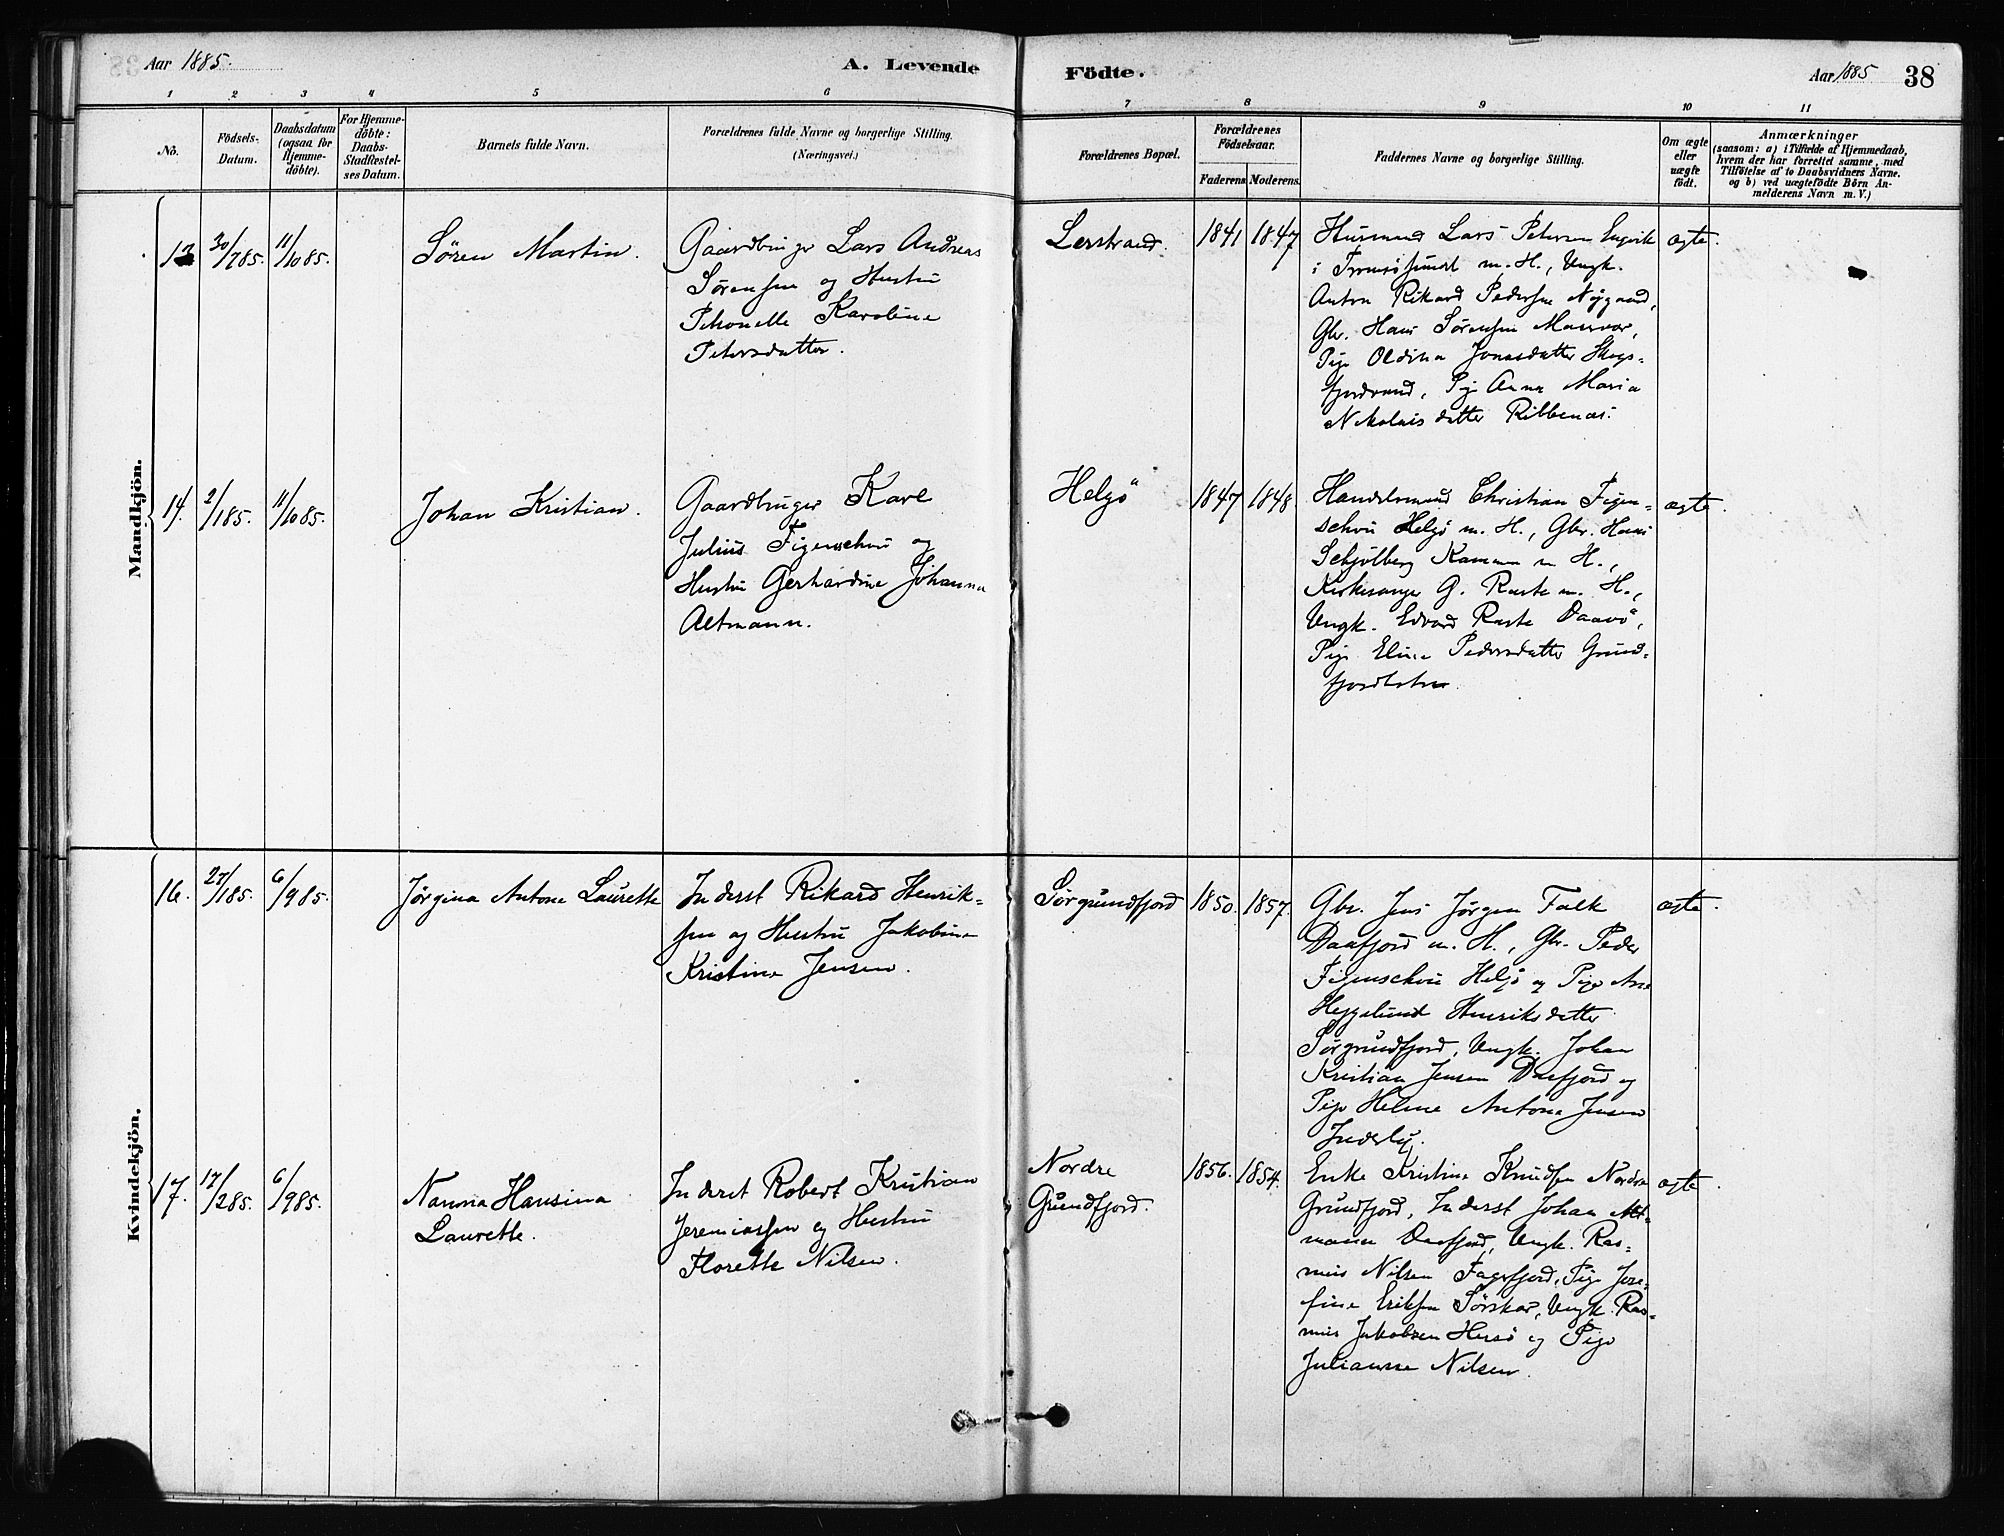 Aar 1885.
A. Levende
Födte.
Aar 1885
38
1 2 3 4 5 6 7 8 9 10 11
No.
Födsels-
Datum.
Daabsdatum
(ogsaa for
Hjemme-
döbte).
For Hjemme-
döbte:
Daabs-
Stadfæstel-
ses Datum.
Barnets fulde Navn.
Forældrenes fulde Navne og borgerlige Stilling.
(Næringsvei.)
Forældrenes Bopæl.
Forældrenes
Födselsaar.
Faderens Moderens.
Faddernes Navne og borgerlige Stilling.
Om ægte
eller
uægte
födt.
Anmærkninger
(saasom: a) i Tilfælde af Hjemmedaab,
hvem der har forrettet samme, med
Tilföielse af to Daabsvidners Navne.
og b) ved uægtefödte Börn An-
melderens Navn m. V.)
Mandkjön.
13 30/785. 11/1085.
Søren Martin.
Gaardbruger Lars Andreas
Sørensen og Hustru
Petronelle Karoline
Petersdatter.
Lerstrand.
1841 1847
Husmand Lars Petersen Engvik
i Tromsøsund m. H., Ungk.
Anton Rikard Pedersen Nygaard,
Gbr. Hans Sørensen Maasvær,
Pige Oldina Jonasdatter Skogs-
fjordvand, Pige Anna Maria
Nikolaisdatter Ribbenæs.
ægte.
14. 2/185. 11/1085.
Johan Kristian.
Gaardbruger Karl
Julius Figenschou og
Hustru Gerhardine Johanna
Altmann.
Helgö
1847 1848.
Handelsmand Christian Figen-
schou Helgö m. H., Gbr. Hans
Schjölberg Kammen m H.,
Kirkesanger G. Raste m. H.,
Ungk. Edvard Raste Daavö,
Pige Eline Pedersdatter Grund-
fjordbotn.
ægte.
Kvindekjön.
16. 27/185. 6/985.
Jørgina Antone Laurette
Inderst Rikard Henrik-
sen og Hustru Jakobine
Kristine Jensen.
Sørgrundfjord
1850. 1857.
Gbr. Jens Jørgen Falk
Daafjord m. H., Gbr. Peder
Figenschou Helgö og Pige Ane
Heggelund Henriksdatter
Sørgrundfjord, Ungk. Johan
Kristian Jensen Daafjord og
Pige Helene Antona Jensen
Inderby.
ægte.
17. 17/285. 6/985.
Nanna Hansina
Laurette.
Inderst Robert Kristian
Jeremiassen og Hustru
Florette Nilsen.
Nordre
Grundfjord.
1856. 1854.
Enke Kristine Knudsen Nordre
Grundfjord, Inderst Johan Alt-
mann Daafjord, Ungk. Ras-
mus Nilsen Fagerfjord, Pige Jose-
fine Eriksen Sørskar, Ungk. Ras-
mus Jakobsen Hersö og Pige
Julianne Nilsen.
ægte.